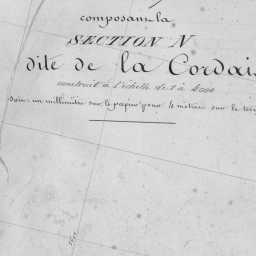 composant la
SECTION N
dite de la Cordai
construit à l'échelle de 1 à 4000
Soit: un millimètre sur le papier pour 4 mètres sur le